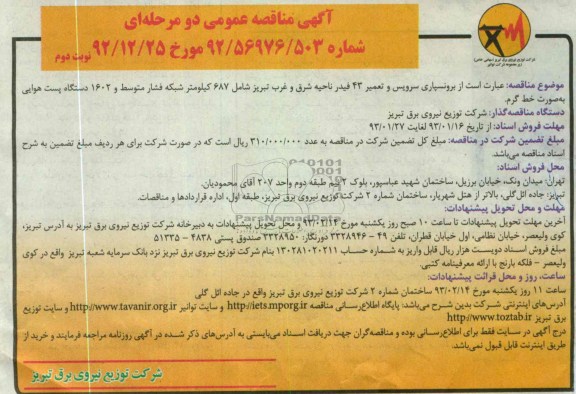 آگهی مناقصه عمومی دو مرحله‌ای
شماره ۹۲/۵۶۹۷۶/۵۰۳ مورخ ۹۲/۱۲/۲۵ نوبت دوم
شرکت توزیع نیروی برق تبریز (سهامی خاص)
موضوع مناقصه: عبارت است از برونسپاری سرویس و تعمیر ۴۳ فیدر ناحیه شرق و غرب تبریز شامل ۶۸۷ کیلومتر شبکه فشار متوسط و ۱۶۰۲ دستگاه پست هوایی
به‌صورت خط گرم.
دستگاه مناقصه‌گذار: شرکت توزیع نیروی برق تبریز
مهلت فروش اسناد: از تاریخ ۹۳/۰۱/۱۶ لغایت ۹۳/۰۱/۲۷
مبلغ تضمین شرکت در مناقصه: مبلغ کل تضمین شرکت در مناقصه به عدد ۳۱۰/۰۰۰/۰۰۰ ریال است که در صورت شرکت برای هر ردیف مبلغ تضمین به شرح
اسناد مناقصه می‌باشد.
محل فروش اسناد:
تهران: میدان ونک، خیابان برزیل، ساختمان شهید عباسپور، بلوک ۲ نیم طبقه دوم واحد ۲۰۷ آقای محمودیان.
تبریز: جاده ائل‌گلی، بالاتر از هتل شهریار، ساختمان شماره ۲ شرکت توزیع نیروی برق تبریز، طبقه اول، اداره قراردادها و مناقصات.
مهلت و محل تحویل پیشنهادات:
آخرین مهلت تحویل پیشنهادات تا ساعت ۱۰ صبح روز یکشنبه مورخ ۹۳/۰۲/۱۴ و محل تحویل پیشنهادات به دبیرخانه شرکت توزیع نیروی برق تبریز به آدرس تبریز،
کوی ولیعصر، خیابان نظامی، اول خیابان قطران، تلفن ۴۹ - ۳۳۲۸۹۴۶ دورنگار: ۳۳۲۸۹۵۰ صندوق پستی ۴۸۳۸ - ۵۱۳۳۵
مبلغ فروش اسناد دویست هزار ریال قابل واریز به شماره حساب ۱۳۰۲۸۱۰۲۰۲۱۱ بنام شرکت توزیع نیروی برق تبریز نزد بانک سرمایه شعبه تبریز واقع در کوی
ولیعصر - فلکه بارنج با ارائه معرفینامه کتبی.
ساعت، روز و محل قرائت پیشنهادات:
ساعت ۱۱ روز یکشنبه مورخ ۹۳/۰۲/۱۴ ساختمان شماره ۲ شرکت توزیع نیروی برق تبریز واقع در جاده ائل گلی
آدرس‌های اینترنتی شرکت بدین شرح می‌باشد: پایگاه اطلاع‌رسانی مناقصه http://iets.mporg.ir و سایت توانیر http://www.tavanir.org.ir و سایت توزیع
برق تبریز http://www.toztab.ir
درج آگهی در سایت فقط برای اطلاع‌رسانی بوده و مناقصه‌گران جهت دریافت اسناد می‌بایستی به آدرس‌های ذکر شده در آگهی روزنامه مراجعه فرمایند و خرید از
طریق اینترنت قابل قبول نمی‌باشد.
شرکت توزیع نیروی برق تبریز